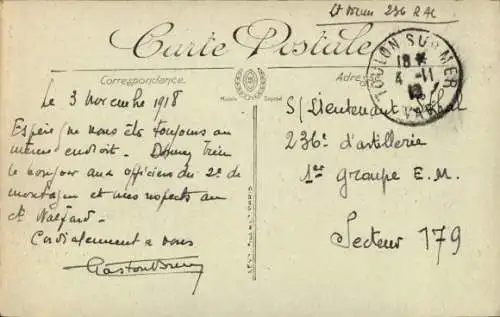 Lt Brun 236 RAC
Carte Postale
Correspondance
Adresse
Modèle Déposé
TOULON SUR MER
18
4 - 11
18
VAR
Le 3 novembre 1918
Espère que vous êtes toujours au
même endroit. Donnez bien
le bonjour aux officiers du 2e de
montagne et mes respects au
Ct Walfard.
Cordialement à vous
Gaston Brun
S/Lieutenant
236e d'artillerie
1er groupe E. M.
Secteur 179